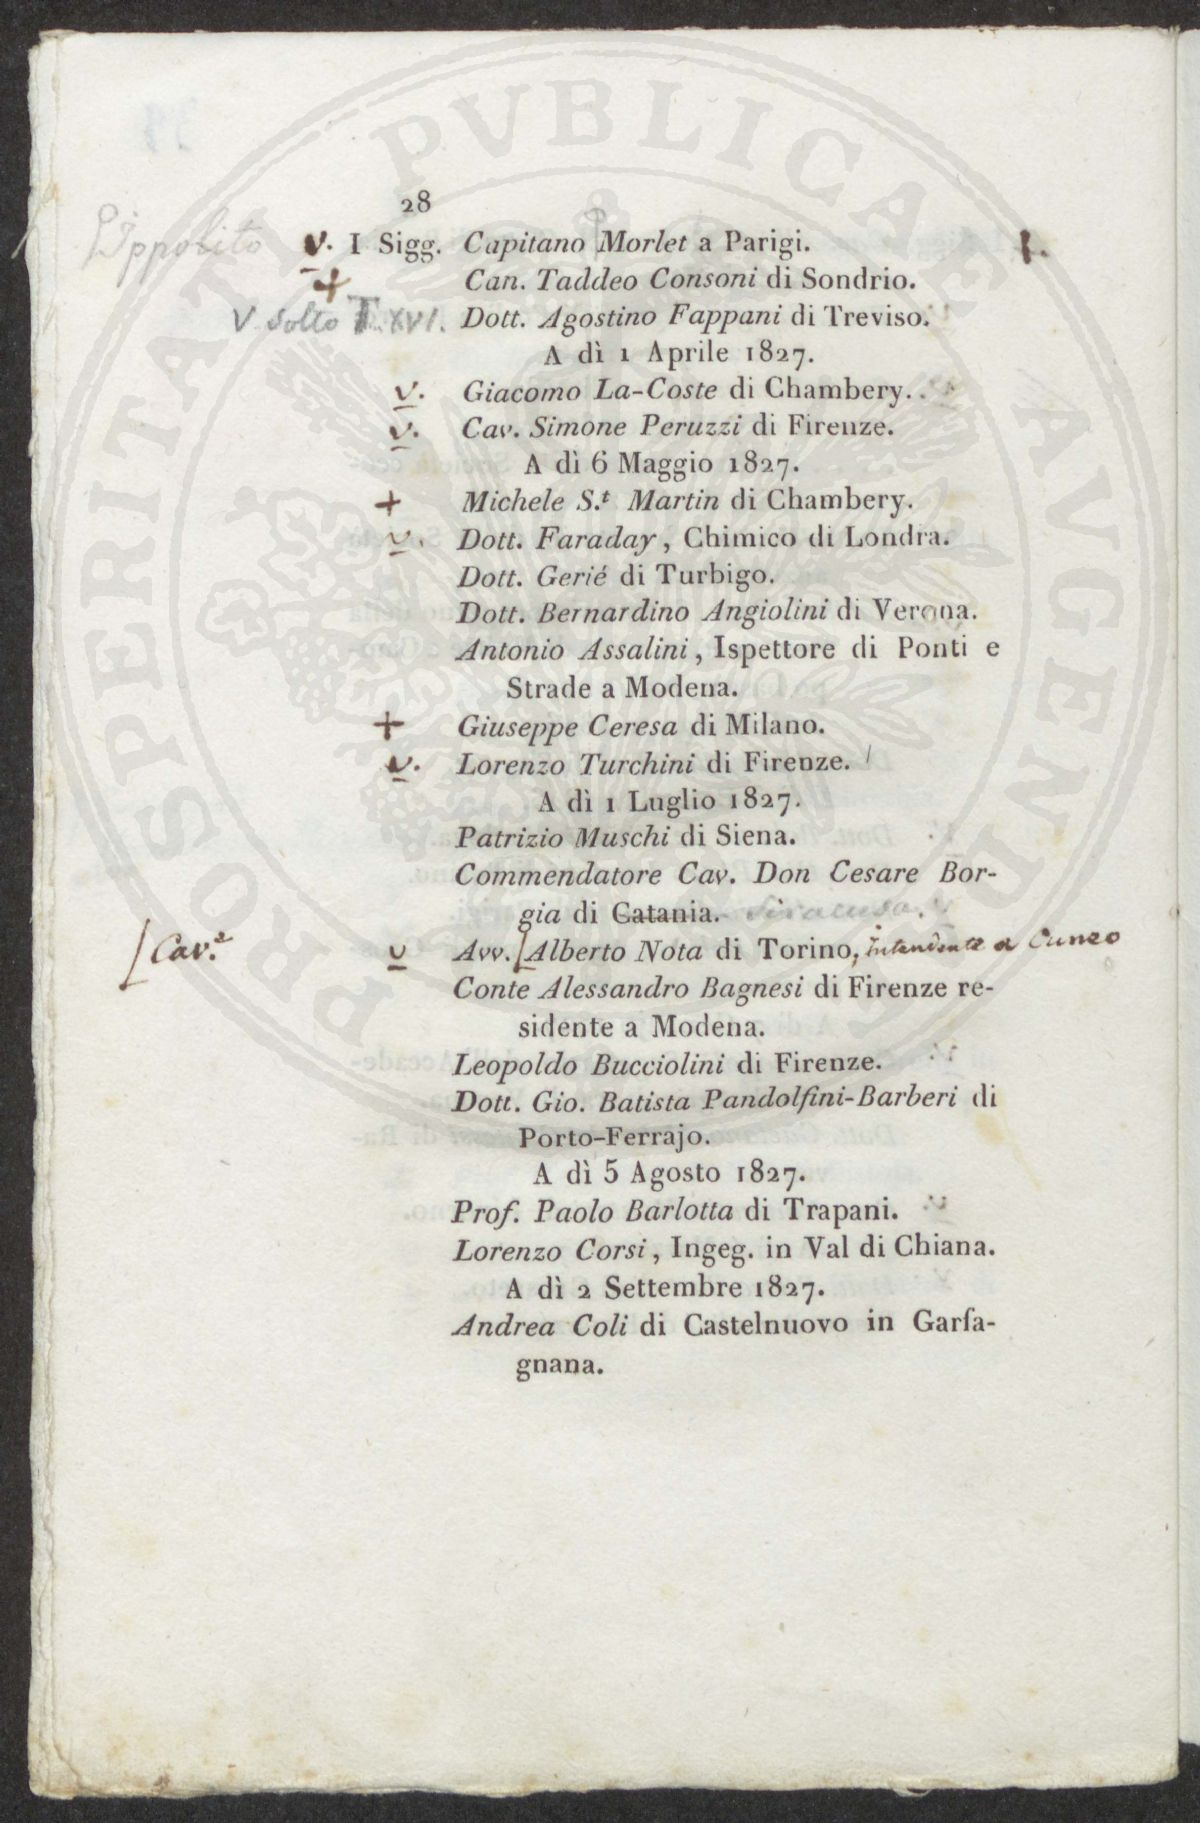 28
Ippolito v. I Sigg. Capitano Morlet a Parigi. +.
+ Can. Taddeo Consoni di Sondrio.
V sotto T. XVI. Dott. Agostino Fappani di Treviso.
A dì 1 Aprile 1827.
v. Giacomo La-Coste di Chambery.
v. Cav. Simone Peruzzi di Firenze.
A dì 6 Maggio 1827.
+ Michele S.t Martin di Chambery.
v. Dott. Faraday, Chimico di Londra.
Dott. Gerié di Turbigo.
Dott. Bernardino Angiolini di Verona.
Antonio Assalini, Ispettore di Ponti e
Strade a Modena.
+ Giuseppe Ceresa di Milano.
v. Lorenzo Turchini di Firenze.
A dì 1 Luglio 1827.
Patrizio Muschi di Siena.
Commendatore Cav. Don Cesare Bor-
gia di Catania. Siracusa.
[Cav.e v Avv. [Alberto Nota di Torino, Intendente a Cuneo
Conte Alessandro Bagnesi di Firenze re-
sidente a Modena.
Leopoldo Bucciolini di Firenze.
Dott. Gio. Batista Pandolfini-Barberi di
Porto-Ferrajo.
A dì 5 Agosto 1827.
Prof. Paolo Barlotta di Trapani.
Lorenzo Corsi, Ingeg. in Val di Chiana.
A dì 2 Settembre 1827.
Andrea Coli di Castelnuovo in Garfa-
gnana.
PROSPERITATI PVBLICAE AVGENDAE